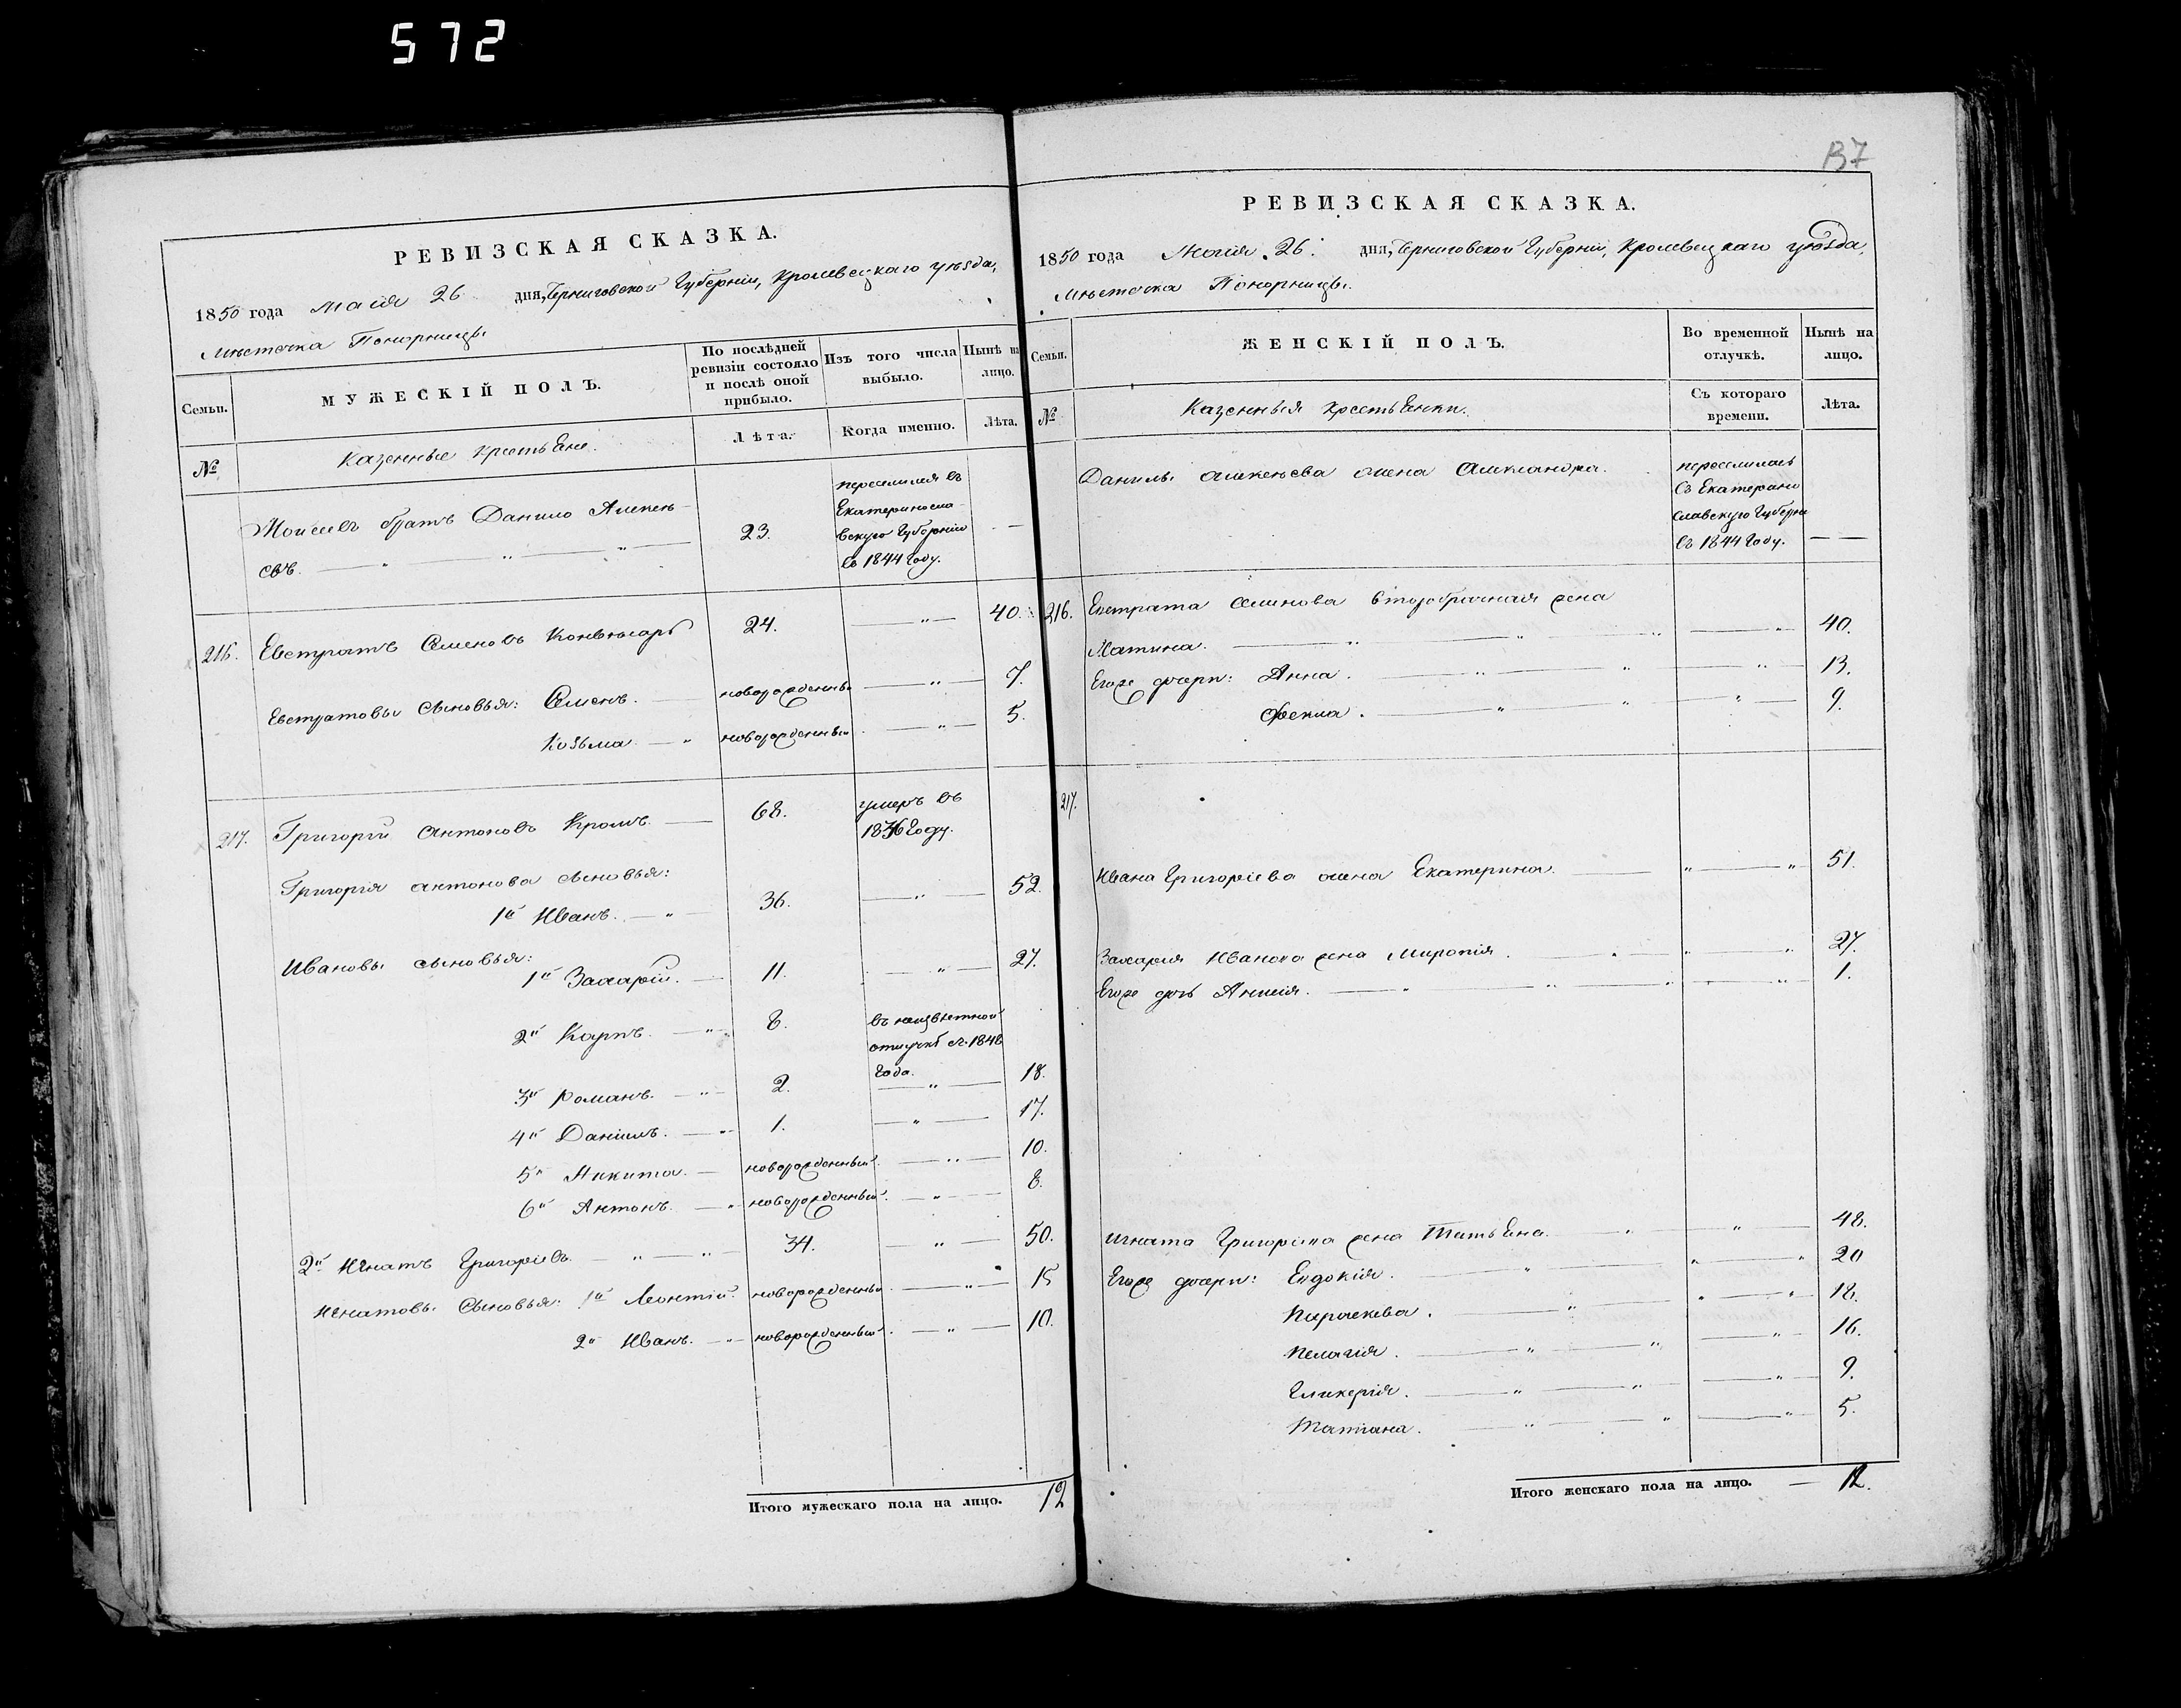 572
137
РЕВИЗСКАЯ СКАЗКА.
1850 года Маія 26 дня, Черниговской Губерніи, Кролевецкаго уѣзда,
Мѣстечка Понорницы
Семьи. МУЖЕСКІЙ ПОЛЪ. По послѣдней ревизіи состояло и послѣ оной прибыло. Изъ того числа выбыло. Нынѣ на лицо.
№ Казенные крестьяне. Лѣта. Когда именно. Лѣта.
Моисеевъ братъ Данило Алексѣ-
евъ. 23. переселился въ
Екатеринosла-
вскую Губернію
въ 1844 Году.
216. Евстратъ Семеновъ 24. 40.
Евстратовы сыновья: Семенъ. новорожденный 7.
Козьма. новорожденный 5.
217. Григорій Антоновъ Кромъ. 68. умеръ въ
1836 Году.
Григорія Антонова сыновья:
1й Иванъ. 36. 52.
Ивановы сыновья:
1й Захарій. 11. 27.
2й Карпъ. 8. въ неизвѣстной
отлучкѣ съ 1848
Года.
3й Романъ. 2. 18.
4й Даніилъ. 1. 17.
5й Никита. новорожденный. 10.
6й Антонъ. новорожденный. 8.
2й Игнатъ Григоріевъ. 34. 50.
Игнатовы сыновья: 1й Леонтій. новорожденный. 15
2й Иванъ. новорожденный. 10.
Итого мужескаго пола на лицо. 12
РЕВИЗСКАЯ СКАЗКА.
1850 года Маія 26. дня, Черниговской Губерніи, Кролевецкаго уѣзда,
Мѣстечка Понорницы.
Семьи. ЖЕНСКІЙ ПОЛЪ. Во временной отлучкѣ. Нынѣ на лицо.
№ Казенныя крестьянки. Съ котораго времени. Лѣта.
Данилы Алексѣева жена Александра. переселилась
Въ Екатерино
славскую Губерн
въ 1844 Году.
216. Евстрата Семенова второбрачная жена
40.
Егоже дочери: Анна. 13.
Фекла. 9.
217.
Ивана Григоріева жена Екатерина. 51.
Захарія Иванова жена Миропія. 27.
Егоже дочь Анисія. 1.
Игната Григоріева жена Татьяна. 48.
Егоже дочери: Евдокія. 20
Параскева. 18.
Пелагія. 16.
Гликерія. 9.
Татіана. 5.
Итого женскаго пола на лицо. 12.